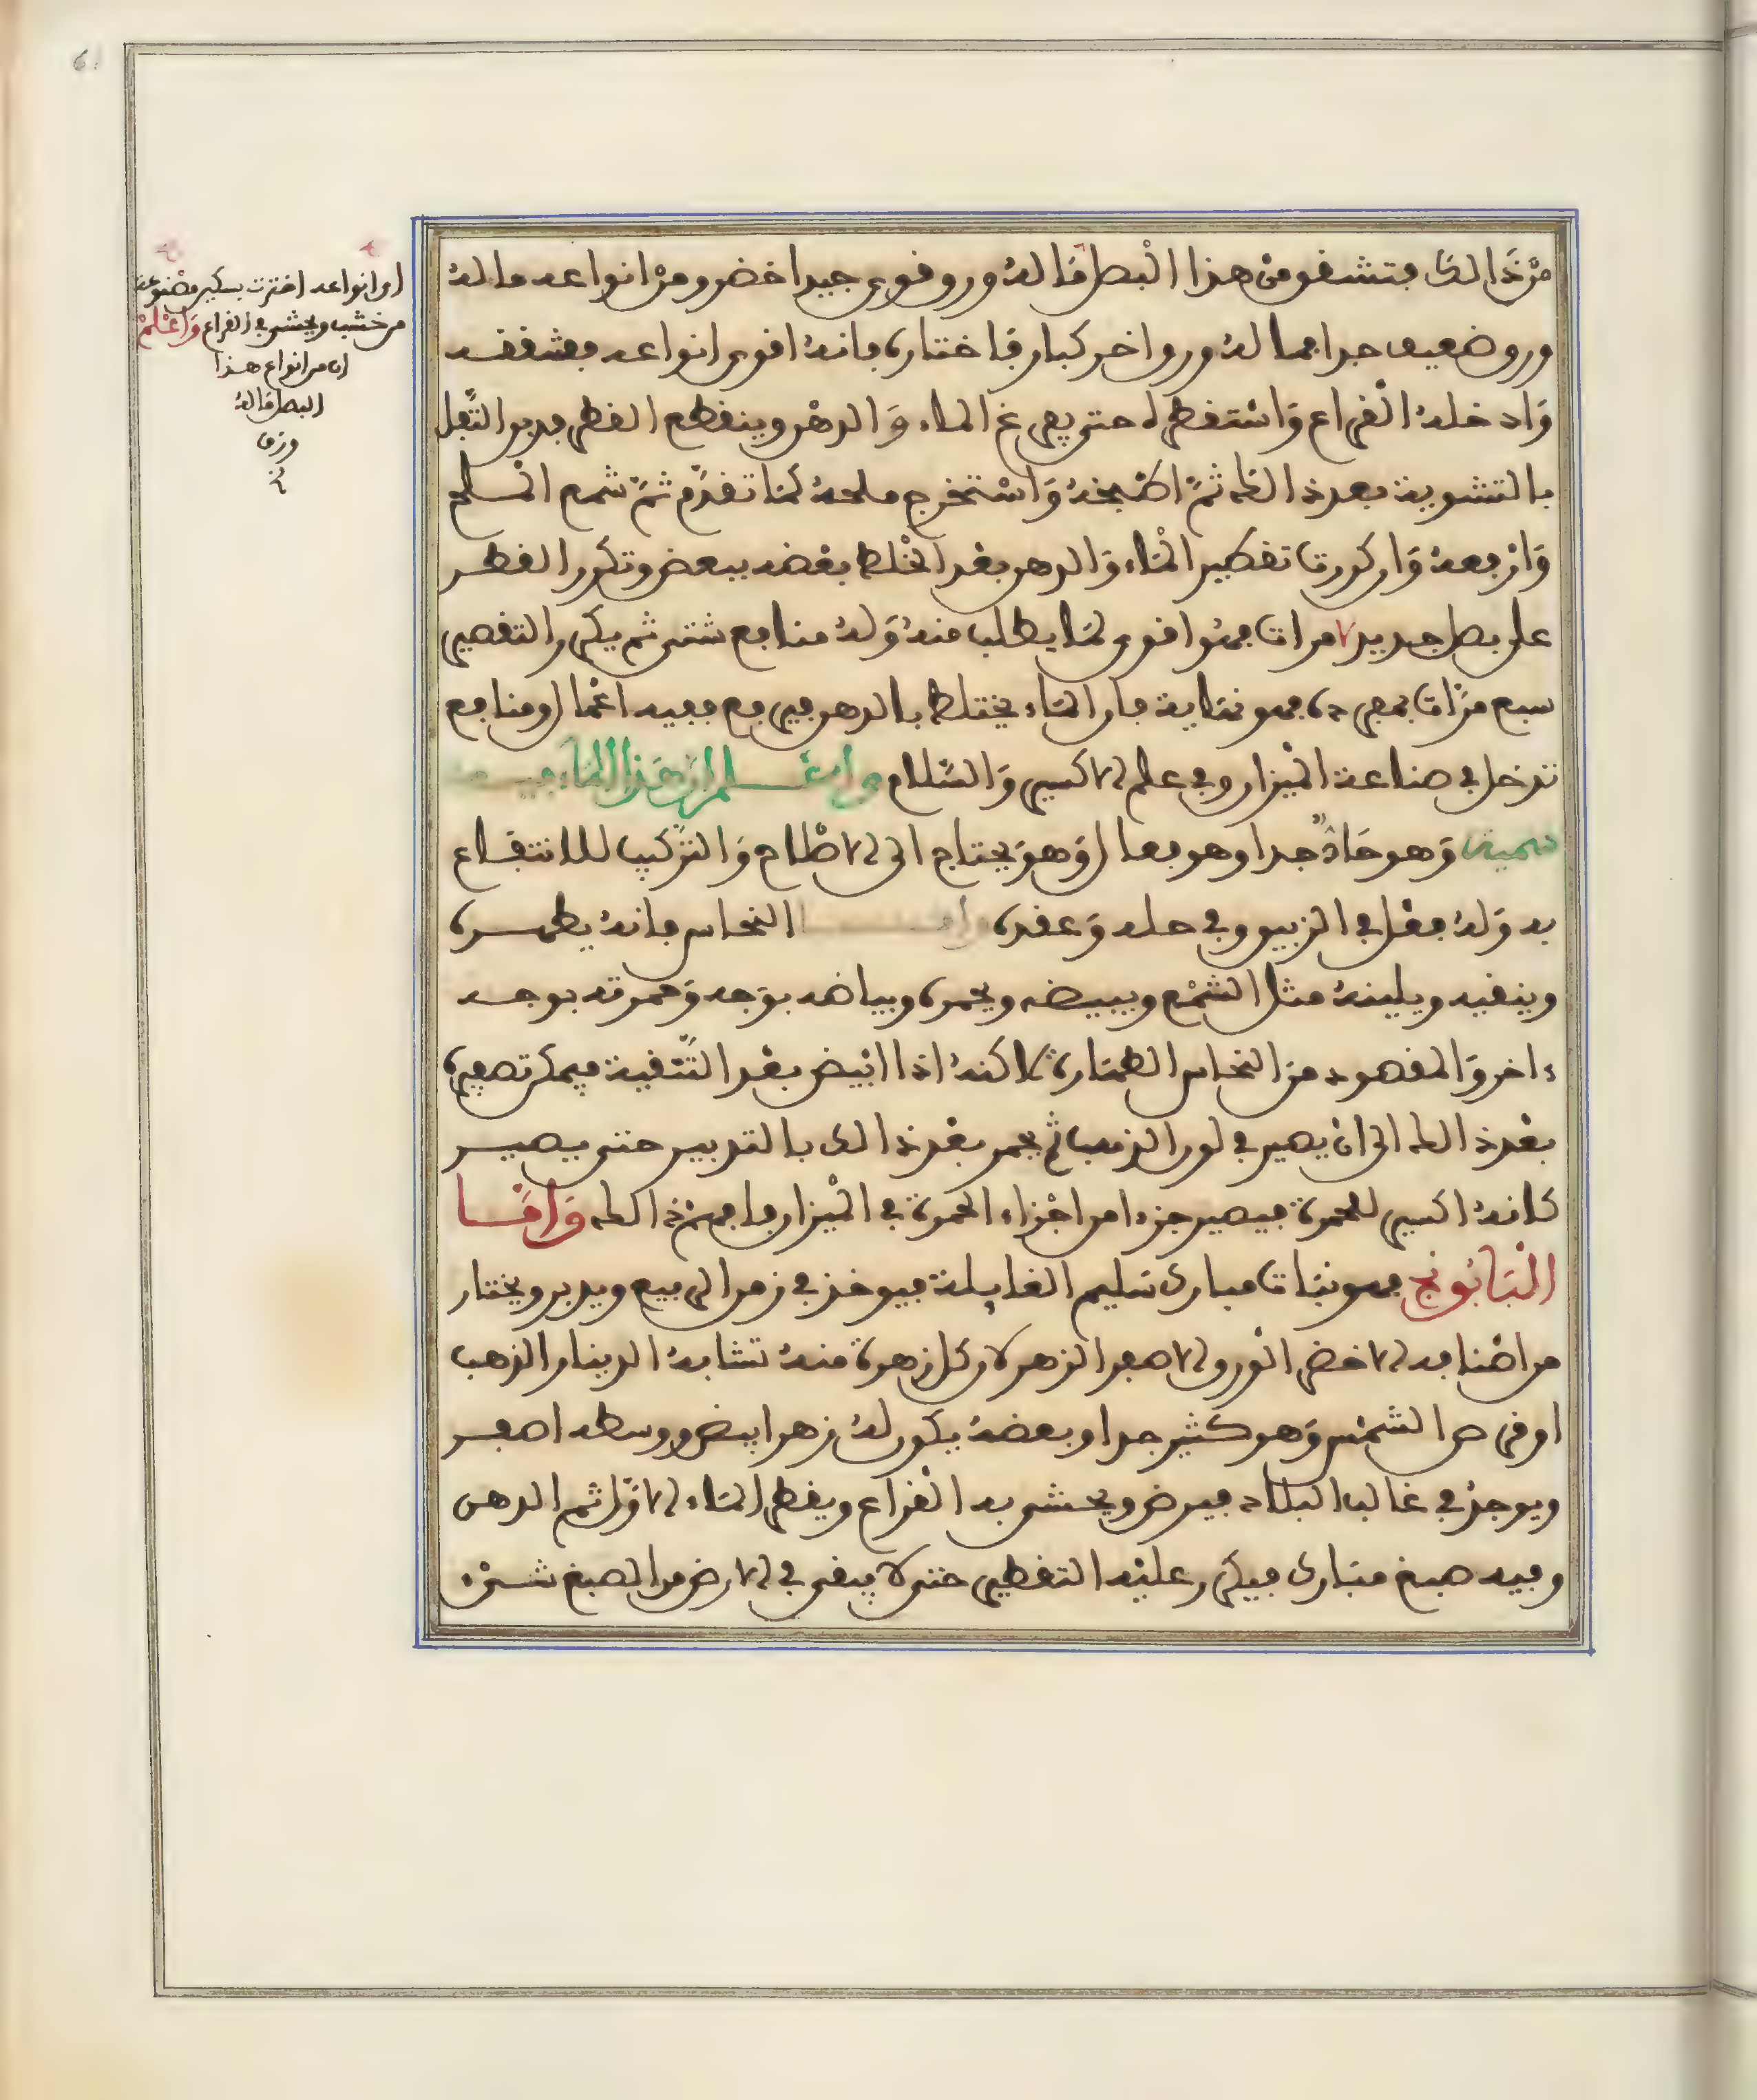 من ذالك فتشفو من هذا البصل ماله ورو فوي جيد اخضر ومن انواعه ماله
ورو ضعيف جدا مماله ورو اخر كبار فاختاره فانه افوى انواعه فشففه
وادخله الفراع واستفطره حتى يفرغ الماء والدهن وينفطع الفطر فدبر الثفل
بالتشوية بعد ذالك ثم اطبخه واستخرج ملحه كما تفدم ثم شمع الملح
وارفعه وان كررت تفطير الماء والدهن بعد الخلط بعضه ببعض وتكرر الفطر
على بصل جديد ٧ مرات فهو افوى لما يطلب منه وله منابع شتى ثم يكرر التفصير
سبع مرات بمعرده فهو نهاية فان الماء يختلط بالدهن فيرفع فيه اعمال ومنافع
تدخل في صناعة الميزان وفي علم الاكسير والسلام واعلم ان هذا الماء فيه
سمية وهو حاد جدا وهو فعال وهو يحتاج الى الاصلاح والتركيب للانتفاع
به وله فعل في الزيبو وفي حله وعفده واما النحاس فانه يطهره
وينفيه ويلينه مثل الشمع ويبيضه ويحمره وبياضه بوجه وحمرته بوجه
ءاخر والمفصود من النحاس الطهارة لاكنه اذا ابيض بعد التنفية فيمكن تصفيره
بعد ذالك الى ان يصير في لون الذهب ثم يحمر بعد ذالك بالتدبير حتى يصير
كانه اكسير للحمرة فيصير جزءا من اجزاء الحمرة في الميزان فافهم ذالك واما
البابونج فهو نبات مبارك سليم الغايلة فيوخذ في زمن الربيع ويدبر ويختار
من اصنافه الاخضر الورو الاصفر الزهر لان كل زهرة منه تشابه الدينار الذهب
او فرص الشمس وهو كثير جدا وبعضه يكون له زهر ابيض ووسطه اصفر
ويوجد في غالب البلاد فيرض ويحشى به الفراع ويفطر الماء الاول ثم الدهن
وفيه صبغ مبارك فيكرر عليه التفطير حتى لا يبفى في الارض من الصبغ شيء
وانواعه اخترت بسكين مصنوعة
من خشب ويحشى في الفراع واعلم
ان من انواع هذا
البصل ماله
ورف